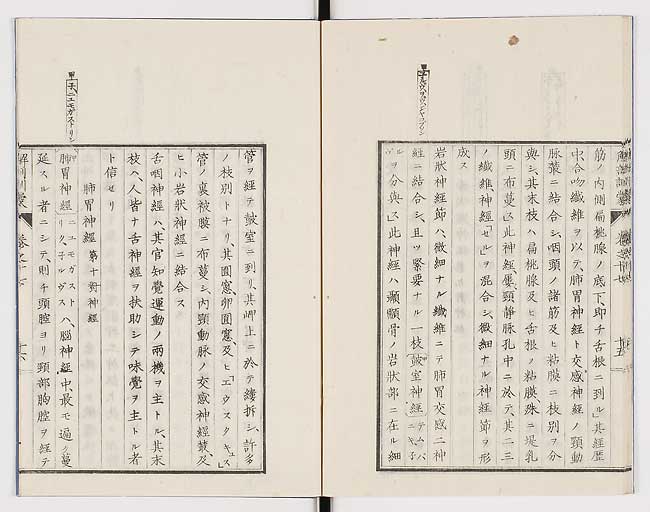 筋ノ內側扁桃腺ノ底下、卽チ舌根ニ到ル」其經歷
中、合吻纖維ヲ以テ、肺胃神經ト交感神經ノ頸動
脉叢ニ結合シ、咽頭ノ諸筋及ヒ粘膜ニ枝別ヲ分
與シ、其末枝ハ扁桃腺及ヒ舌根ノ粘膜殊ニ堤乳
頭ニ布蔓ス」此神經屢頸靜脉孔中ニ於テ、其二三
ノ纖維、神經「セル」ヲ混合シ、微細ナル神經節ヲ形
成ス
岩狀神經節ハ、微細ナル纖維ニテ肺胃交感二神
經ニ結合シ、且ツ緊要ナル一枝鼓室神經
ヲ分與ス」此神經ハ顳顬骨ノ岩狀部ニ在ル細
管ヲ經テ鼓室ニ到リ、其岬上ニ於テ縷拆シ、許多
ノ枝別トナリ、其圓窓卵圓窓及ヒ「エウスタキュス」
管ノ裏被膜ニ布蔓シ、內頸動脉ノ交感神經叢、及
ヒ小岩狀神經ニ結合ス
舌咽神經ハ其官知覺運動ノ兩機ヲ主トル、其末
枝ハ、人皆ナ舌神經ヲ扶助シテ味覺ヲ主トル者
ト信セリ
肺胃神經 第十對神經
甲 子、ニユモガストリシ
肺胃神經 ニユモガスト リク、子ルヴス ハ、腦神經中、最モ遍ク蔓
延スル者ニシテ、則チ頭腔ヨリ頸部胸腔ヲ經テ